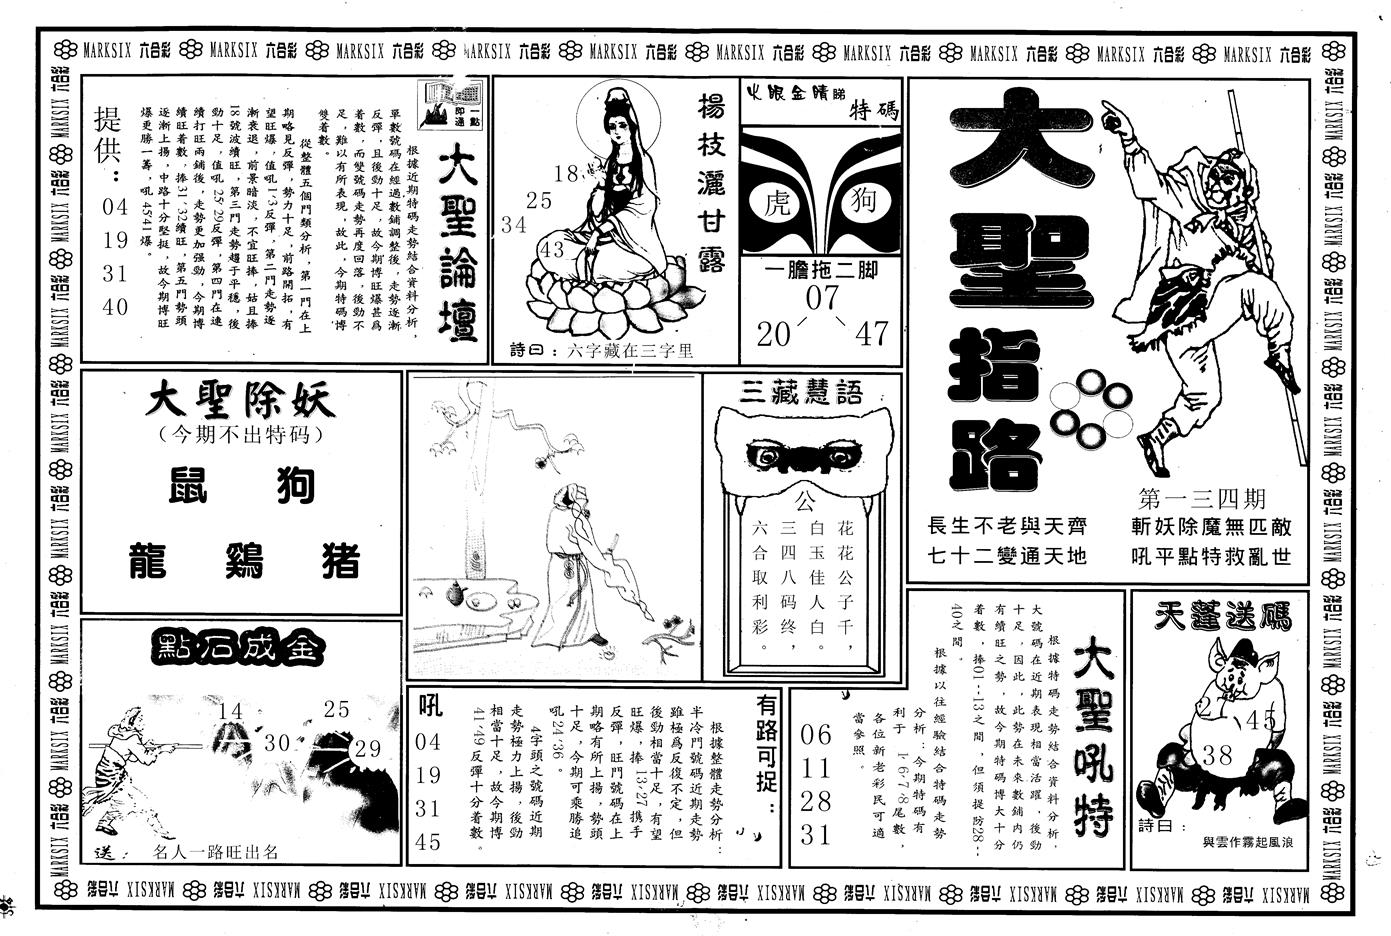 MARKSIX 六合彩 MARKSIX 六合彩 MARKSIX 六合彩 MARKSIX 六合彩 MARKSIX 六合彩 MARKSIX 六合彩 MARKSIX 六合彩 MARKSIX 六合彩 MARKSIX 六合彩 MARKSIX 六合彩
大聖指路
第一三四期
長生不老與天齊
七十二變通天地
斬妖除魔無匹敵
吼平點特救亂世
火眼金睛睇
特碼
虎
狗
一膽拖二脚
07
20
47
楊枝灑甘露
18
25
34
43
詩曰：六字藏在三字里
一點即通
大聖論壇
根據近期特碼走勢結合資料分析，
單數號碼在經過數鋪調整後，走勢逐漸
反彈，且後勁十足，故今期博旺爆甚爲
着數，而雙號碼走勢再度回落，後勁不
足，難以有所表現，故此，今期特碼博
雙着數。
從整體五個門類分析，第一門在上
期略見反彈，勢力十足，前路開拓，有
望旺爆，值吼1·3反彈，第二門走勢逐
漸衰退，前景暗淡，不宜旺捧，姑且捧
18號波續旺，第三門走勢趨于平穩，後
勁十足，值吼25·29反彈，第四門在連
續打旺兩鋪後，走勢更加强勁，今期博
續旺着數，捧31·32續旺，第五門勢頭
逐漸上揚，中路十分堅挺，故今期博旺
爆更勝一籌，吼45·41爆。
提供：
04
19
31
40
大聖除妖
（今期不出特码）
鼠
狗
龍
鷄
猪
三藏慧語
公
花花公子千，
白玉佳人白。
三四八码终，
六合取利彩。
點石成金
14
25
30
29
送：
名人一路旺出名
有路可捉：
根據整體走勢分析：
半冷門號碼近期走勢
雖極爲反復不定，但
後勁相當十足，有望
旺爆，捧13·27携手
反彈，旺門號碼在上
期略有所上揚，勢頭
十足，今期可乘勝追
吼24·36。
4字頭之號碼近期
走勢極力上揚，後勁
相當十足，故今期博
41·49反彈十分着數。
吼
04
19
31
45
大聖吼特
根據特碼走勢結合資料分析，
大號碼在近期表現相當活躍，後勁
十足，因此，此勢在未來數鋪内仍
有續旺之勢，故今期特碼博大十分
着數，捧01--13之間，但須提防28--
40之間。
根據以往經驗結合特碼走勢
分析：今期特碼有
利于1·6·7·8尾數，
各位新老彩民可適
當參照。
06
11
28
31
天蓬送碼
45
38
詩曰：
與雲作霧起風浪
MARKSIX 六合彩 MARKSIX 六合彩 MARKSIX 六合彩 MARKSIX 六合彩 MARKSIX 六合彩 MARKSIX 六合彩 MARKSIX 六合彩 MARKSIX 六合彩 MARKSIX 六合彩 MARKSIX 六合彩